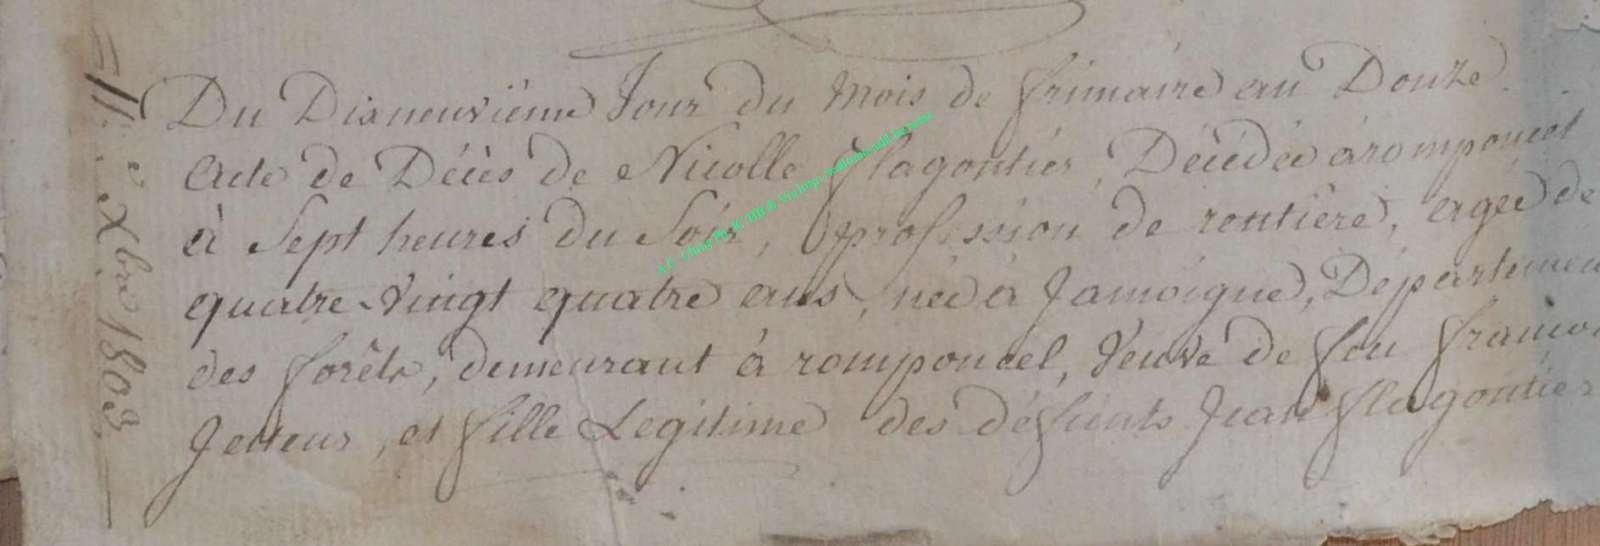 Du Dixneuvième Jour du Mois de frimaire an Douze.
Acte de Décès de Nicolle flagontier, Décédée à romponcel
à Sept heures du Soir, profession de rentière, agée de
quatre Vingt quatre ans, née à Jamoigne, Départemen
des forêts, demeurant à romponcel, Veuve de feu francoi
Jetteur, et fille Legitime des défunts Jean flagontier
11. Xbre 1803.